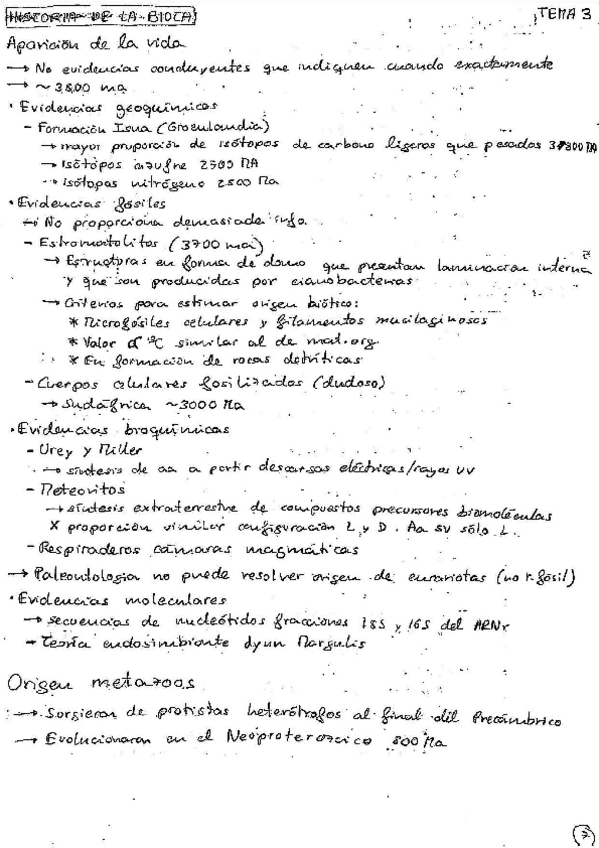 HISTORIA DE LA BIOTA
TEMA 3
Aparición de la vida
→ No evidencias concluyentes que indiquen cuando exactamente
→ ~ 3800 ma
· Evidencias geoquímicas
- Formación Isua (Groenlandia)
→ mayor proporción de isótopos de carbono ligeros que pesados 3800 MA
→ Isótopos azufre 2700 MA
→ Isótopos nitrógeno 2500 Ma
· Evidencias fósiles
→ No proporciona demasiada info.
- Estromatolitos (3700 ma)
→ Estructuras en forma de domo que presentan laminación interna
y que son producidas por cianobacterias
→ Criterios para estimar origen biótico:
* Microfósiles celulares y filamentos mucilaginosos
* Valor d¹³C similar al de mat. org.
* En formación de rocas detríticas
- Cuerpos celulares fosilizados (dudoso)
→ Sudáfrica ~3000 Ma
· Evidencias bioquímicas
- Urey y Miller
→ síntesis de aa a partir descargas eléctricas/rayos UV
- Meteoritos
→ síntesis extraterrestre de compuestos precursores biomoléculas
X proporción similar configuración L y D. Aa sv sólo L.
- Respiraderos cámaras magmáticas
→ Paleontología no puede resolver origen de eucariotas (no r. fósil)
· Evidencias moleculares
→ secuencias de nucleótidos fracciones 18S y 16S del ARNr
- Teoría endosimbionte Lynn Margulis
Origen metazoos
→ Surgieron de protistas heterótrofos al final del Precámbrico
→ Evolucionaron en el Neoproterozoico 800 Ma
7